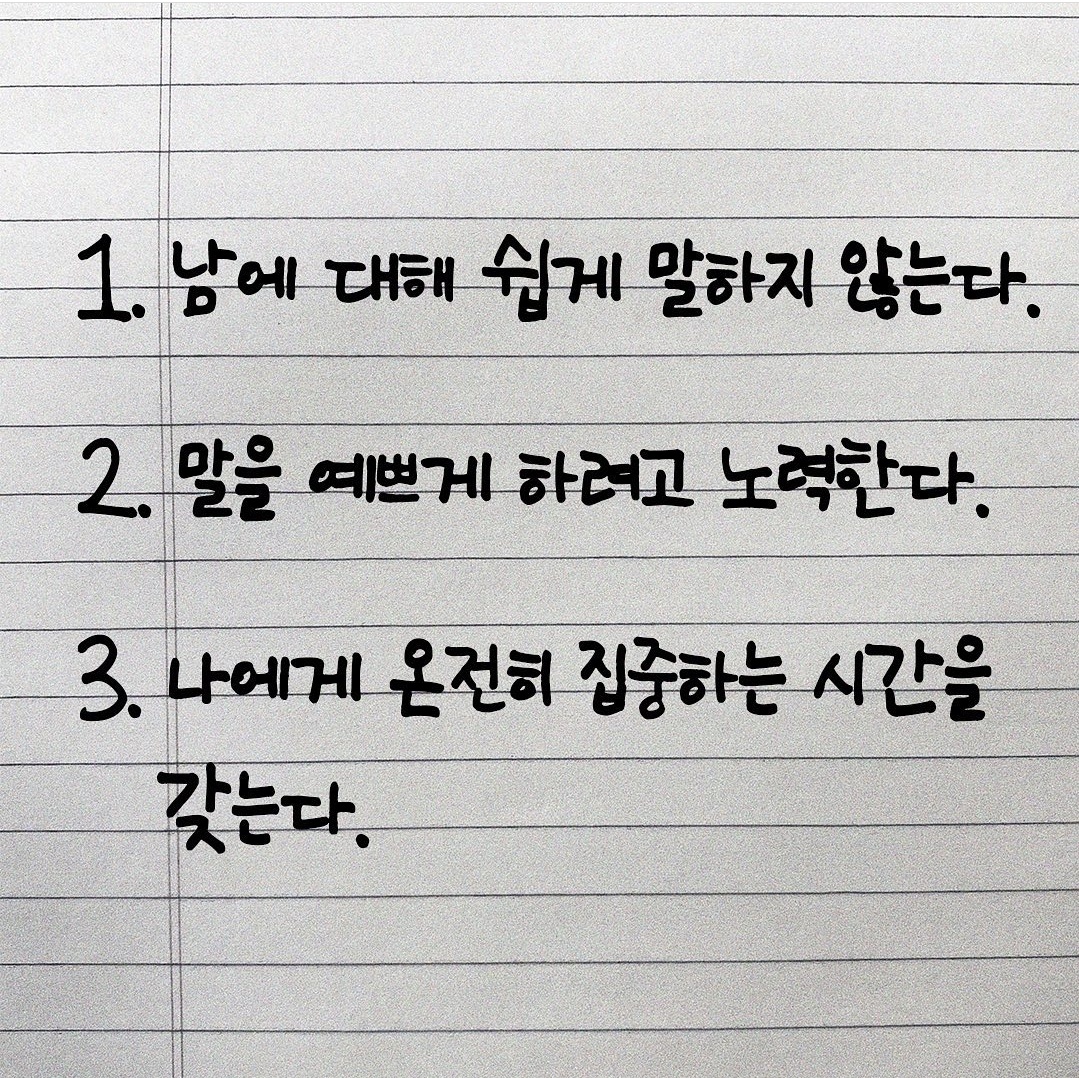 1. 남에 대해 쉽게 말하지 않는다.
2. 말을 예쁘게 하려고 노력한다.
3. 나에게 온전히 집중하는 시간을
갖는다.